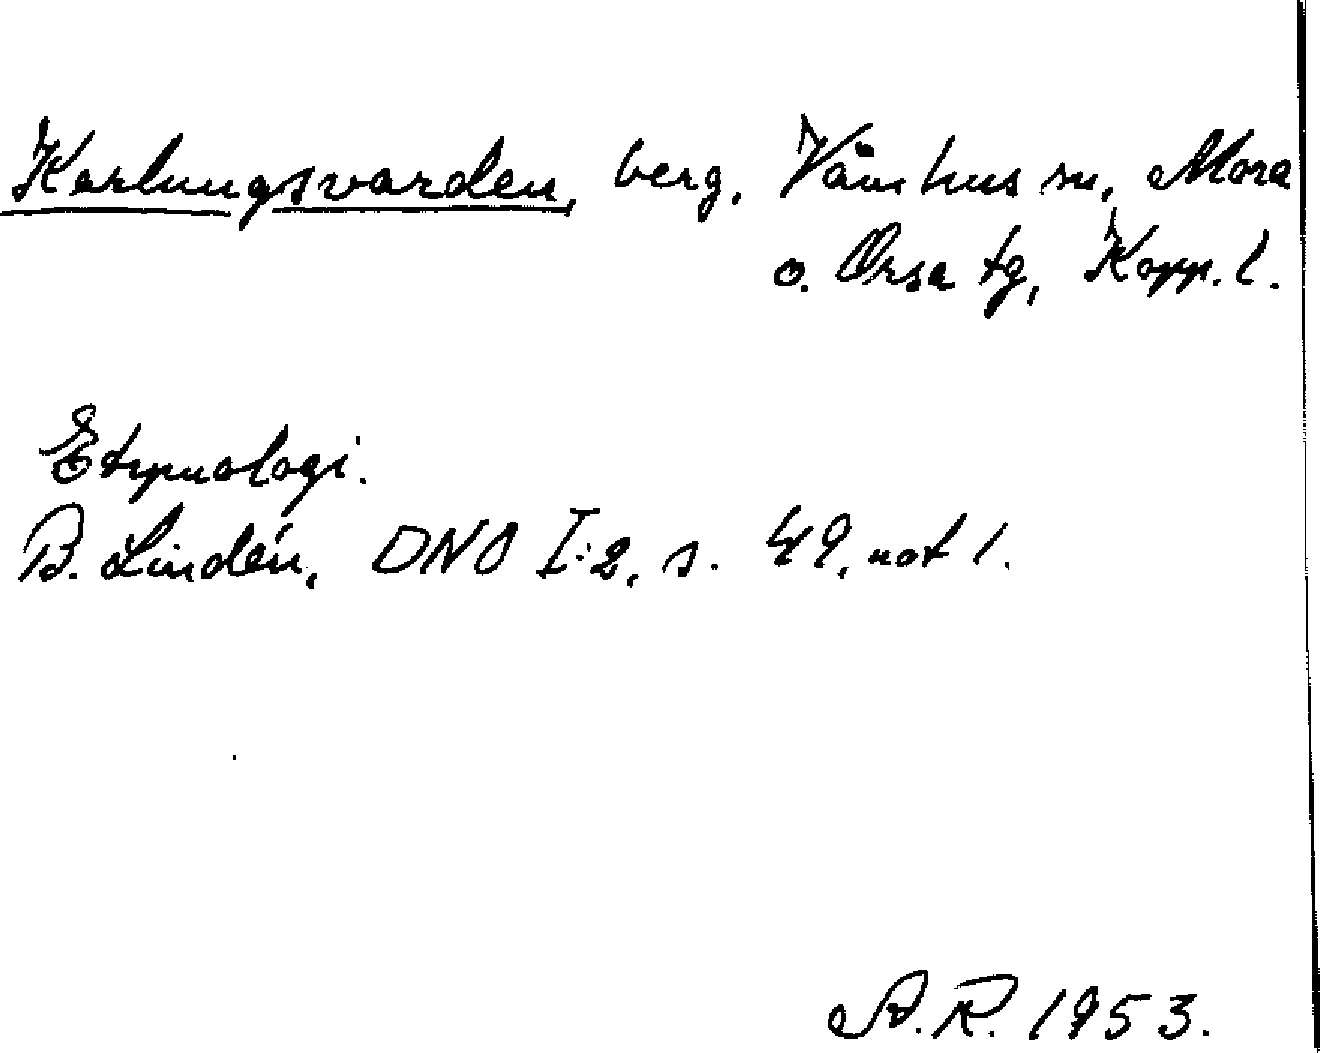 Karlungsvarden, berg, Våmhus sn, Mora
o. Orsa tg, Kopp. l.
Etymologi.
B. Lindén, DNO I:2, s. 49, not 1.
A.R. 1953.